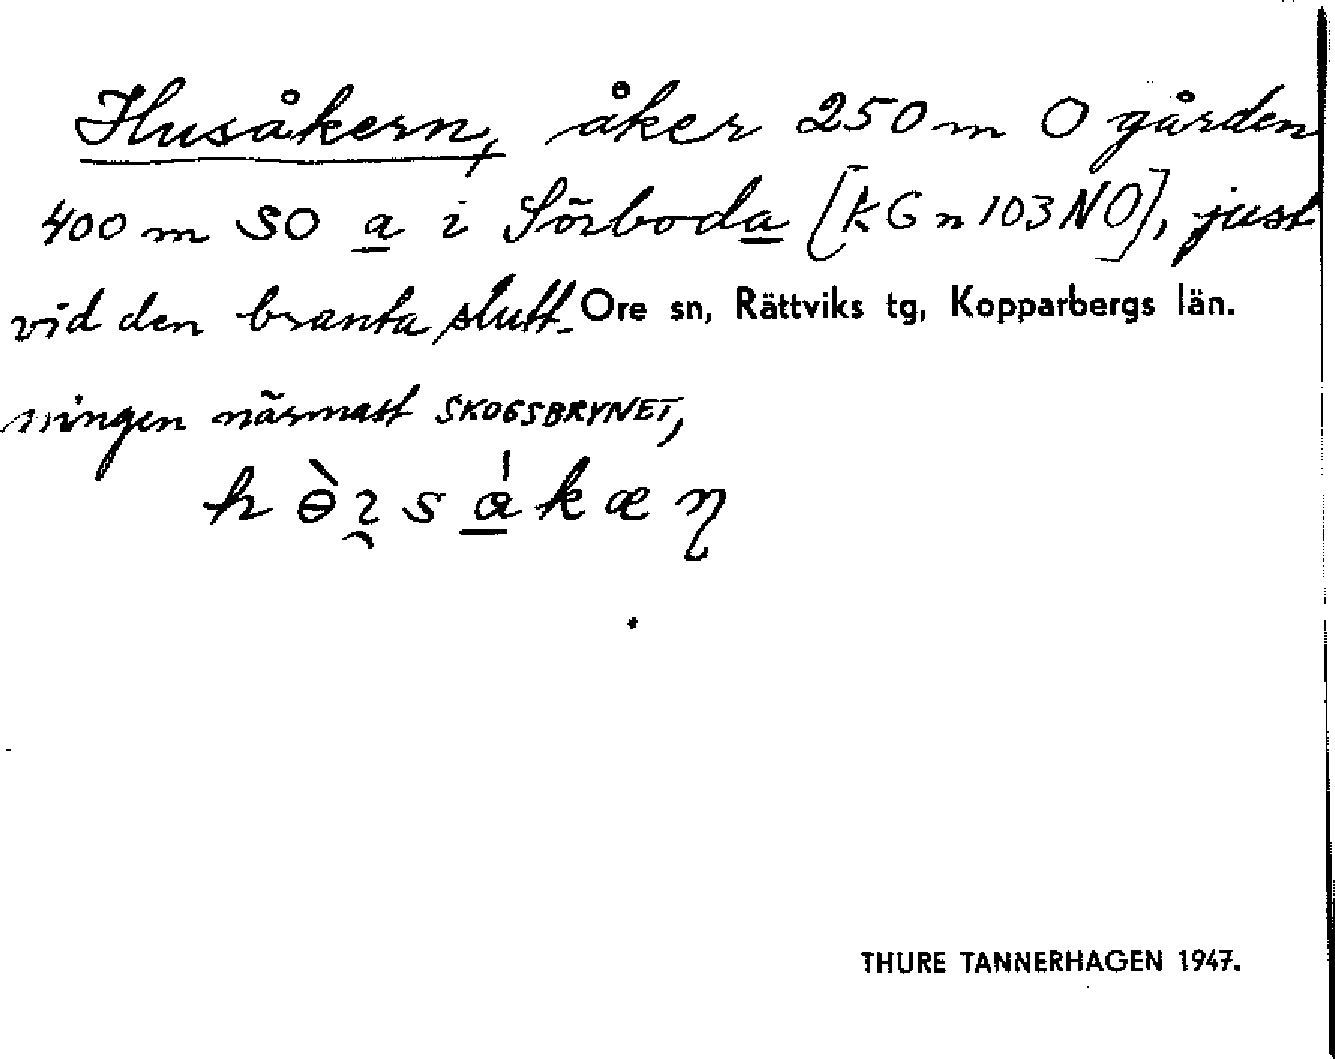 Husåkern, åker 250 m O gården
400 m SO a i Sörboda [KG n 103 NO], just
vid den branta slutt- Ore sn, Rättviks tg, Kopparbergs län.
ningen närmast SKOGSBRYNET,
THURE TANNERHAGEN 1947.